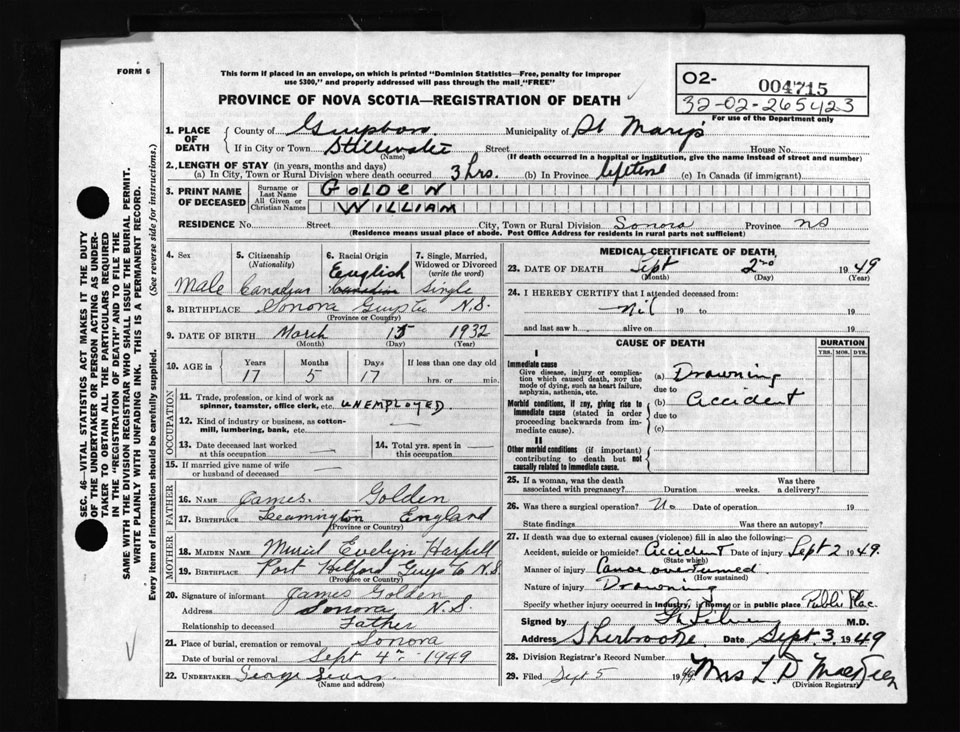 FORM 6
This form if placed in an envelope, on which is printed "Dominion Statistics—Free, penalty for improper
use $300," and properly addressed will pass through the mail "FREE"
O2-
004715
32-02-265423
For use of the Department only
PROVINCE OF NOVA SCOTIA—REGISTRATION OF DEATH
1. PLACE OF DEATH
County of Municipality of St Mary's
If in City or Town Stillwater Street House No.
(Name) (If death occurred in a hospital or institution, give the name instead of street and number)
2. LENGTH OF STAY (in years, months and days)
(a) In City, Town or Rural Division where death occurred 3 hrs. (b) In Province lifetime (c) In Canada (if immigrant)
3. PRINT NAME OF DECEASED
Surname or Last Name GOLDEN
All Given or Christian Names WILLIAM
RESIDENCE No. Street City, Town or Rural Division Sonora Province NS
(Residence means usual place of abode. Post Office Address for residents in rural parts not sufficient)
4. Sex
Male
5. Citizenship
(Nationality)
Canadian
6. Racial Origin
English
Canadian
7. Single, Married,
Widowed or Divorced
(write the word)
Single
8. BIRTHPLACE Sonora Guys Co N.S.
(Province or Country)
9. DATE OF BIRTH March 15 1932
(Month) (Day) (Year)
10. AGE in
Years Months Days If less than one day old
17 5 17 hrs. or min.
OCCUPATION
11. Trade, profession, or kind of work as
spinner, teamster, office clerk, etc. UNEMPLOYED.
12. Kind of industry or business, as cotton-
mill, lumbering, bank, etc. —
13. Date deceased last worked
at this occupation —
14. Total yrs. spent in
this occupation —
15. If married give name of wife
or husband of deceased —
FATHER
16. NAME James. Golden
17. BIRTHPLACE Leamington England
(Province or Country)
MOTHER
18. MAIDEN NAME Muriel Evelyn Harpell
19. BIRTHPLACE Port Hilford Guys Co N.S.
(Province or Country)
20. Signature of informant James Golden
Address Sonora N.S.
Relationship to deceased Father
21. Place of burial, cremation or removal Sonora
Date of burial or removal Sept 4th 1949
22. UNDERTAKER George Sears
(Name and address)
MEDICAL CERTIFICATE OF DEATH
23. DATE OF DEATH Sept 2nd 1949
(Month) (Day) (Year)
24. I HEREBY CERTIFY that I attended deceased from:
Nil 19 to 19
and last saw h alive on 19
CAUSE OF DEATH
DURATION
YRS. MOS. DYS.
I
Immediate cause
Give disease, injury or complica-
tion which caused death, not the
mode of dying, such as heart failure,
asphyxia, asthenia, etc.
(a) Drowning
due to
Morbid conditions, if any, giving rise to
immediate cause (stated in order
proceeding backwards from im-
mediate cause).
(b) Accident
due to
(c)
II
Other morbid conditions (if important)
contributing to death but not
causally related to immediate cause.
25. If a woman, was the death
associated with pregnancy? Duration weeks. Was there
a delivery?
26. Was there a surgical operation? No Date of operation 19
State findings Was there an autopsy?
27. If death was due to external causes (violence) fill in also the following:
Accident, suicide or homicide? Accident Date of injury Sept 2 1949.
(State which)
Manner of injury Canoe overturned.
(How sustained)
Nature of injury Drowning
Specify whether injury occurred in industry, in home, or in public place Public Plac.
Signed by M.D.
Address Sherbrooke Date Sept. 3. 1949
28. Division Registrar's Record Number
29. Filed Sept 5 1949 Mrs L. D MacKeen
(Division Registrar)
SEC. 46—VITAL STATISTICS ACT MAKES IT THE DUTY
OF THE UNDERTAKER OR PERSON ACTING AS UNDER-
TAKER TO OBTAIN ALL THE PARTICULARS REQUIRED
IN THE "REGISTRATION OF DEATH" AND TO FILE THE
SAME WITH THE DIVISION REGISTRAR WHO SHALL ISSUE THE BURIAL PERMIT.
WRITE PLAINLY WITH UNFADING INK. THIS IS A PERMANENT RECORD.
Every item of information should be carefully supplied. (See reverse side for instructions.)